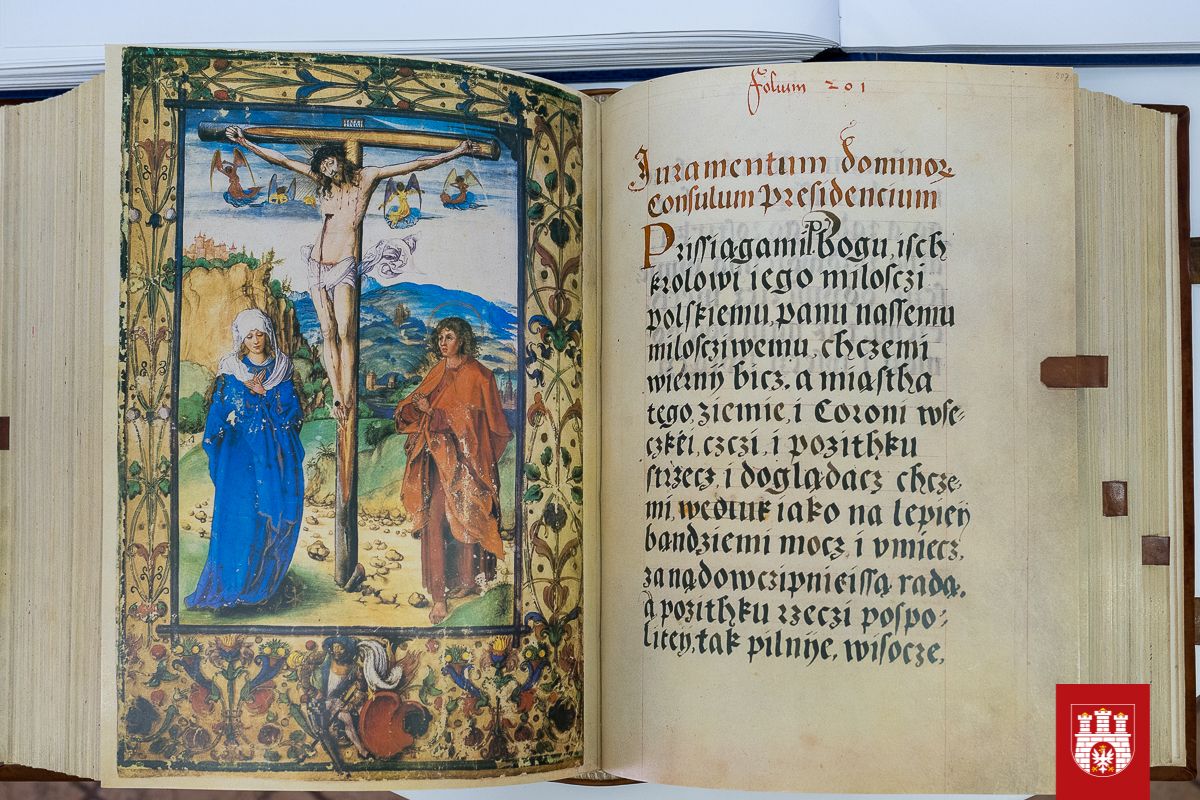 Folium 201
207
Juramentum dominor
Consulum Presidencium
Prissiągami P. Bogu, isch
krolowi iego milosczi
polskiemu, panu nassemu
miloscziwemu, chczemi
wierny bicz. a miastha
tego ziemie, i Coroni wse-
czkei, czczi, i pozithku
strzecz, i doglądacz chcze-
mi, wedluk iako na lepiey
bandziemi mocz, i vmiecz,
za nądowczipnieissą radą.
a pozithku rzeczi pospo-
litey, tak pilnye, wisocze,